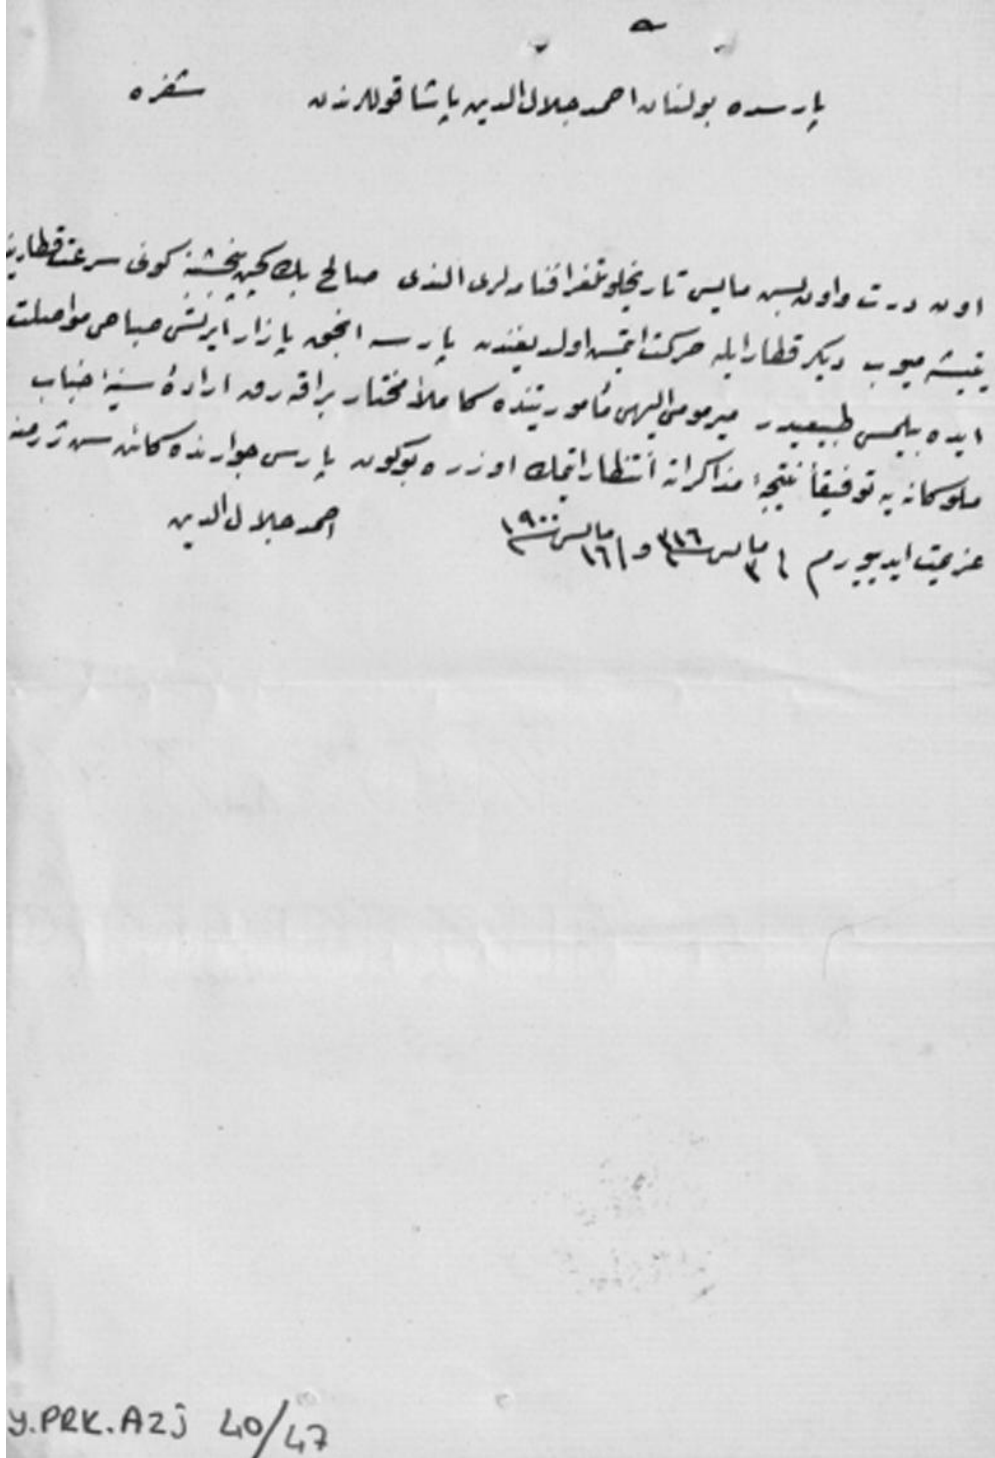 پارسده بولنان احمد جلال الدین پاشا قوللرندن شفره
اون درت و اون بش مایس تاریخلو تلغرافنامه لری الندی صالح بك كچن پنجشنبه كونی سرعت قطارینه
یتیشه میوب دیكر قطار ایله حركت ایتمش اولدیغندن پارسه انجق پازار ایرتسی صباحی مواصلت
ایده بیلمسی طبیعیدر میر مومی الیهی مأموریتنده كاملاً مختار براقه رق ارادهٔ سنیهٔ جناب
ملوكانه یه توفیقاً نتیجهٔ مذاكراته انتظار ایتمك اوزره بوكون پارس جوارنده كائن سن ژرمنه
عزیمت ایدییورم فی ٣ مایس ٣١٦ و فی ١٦ مایس ١٩٠٠
احمد جلال الدین
Y.PRK.AZJ 40/47